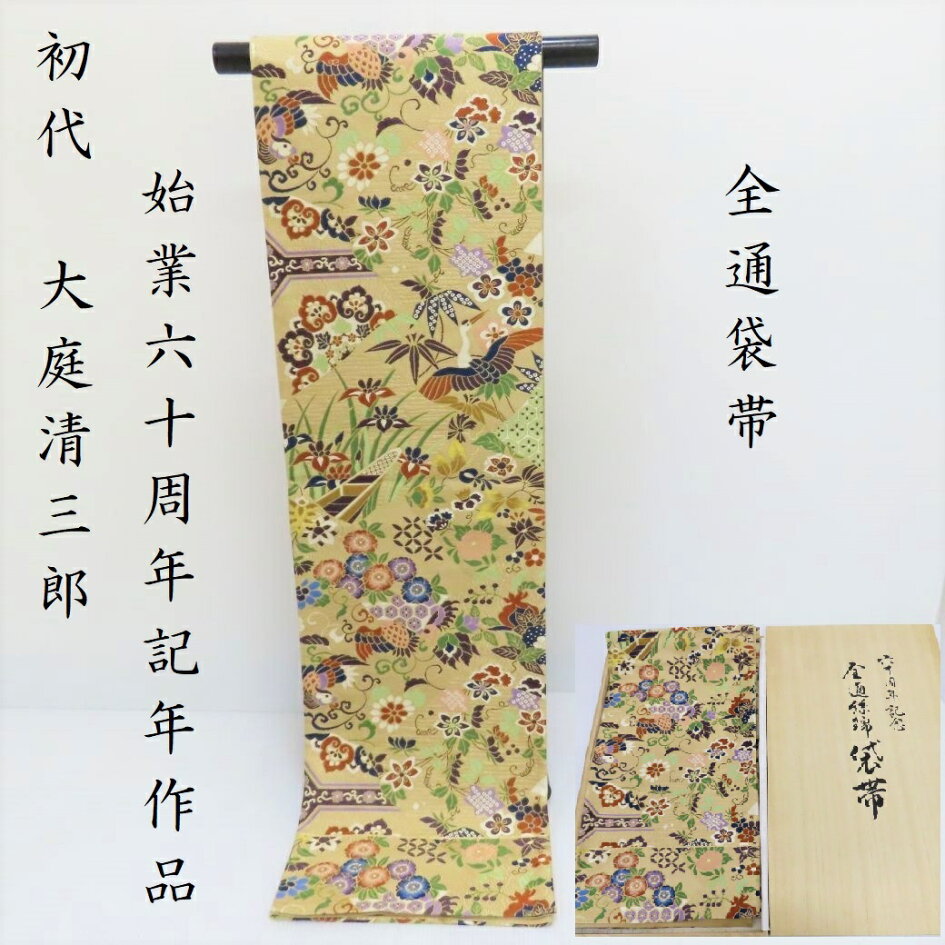 全通袋帯
始業六十周年記年作品
初代 大庭清三郎
六十周年記念
全通絲錦袋帯